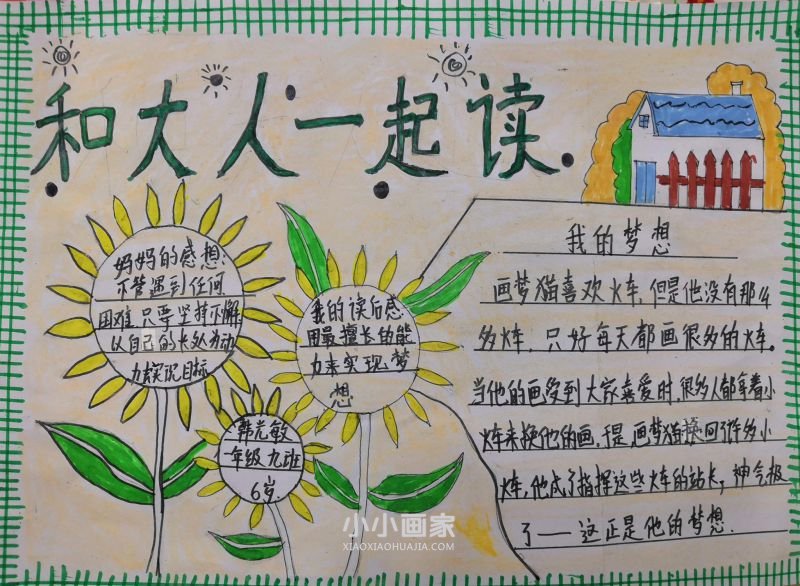 和大人一起读
妈妈的感想:
不管遇到任何
困难,只要坚持不懈
以自己的长处为动
力去实现目标
我的读后感
用最擅长的能
力来实现梦
想
韩尤敏
一年级九班
6岁
我的梦想
画梦猫喜欢火车,但是他没有那么
多火车,只好每天都画很多的火车。
当他的画受到大家喜爱时,很多人都拿着小
火车来换他的画,于是,画梦猫换回了许多小
火车,他成了指挥这些火车的站长,神气极
了——这正是他的梦想.
小小画家
XIAOXIAOHUAJIA.COM